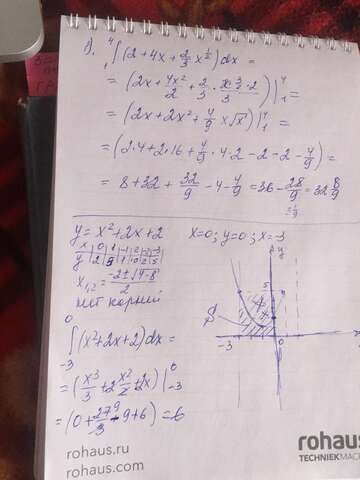 1). ₁⁴∫(2+4x+2/3 x^1/2)dx=
=(2x+4x²/2+2/3·2x^3/2/3)|₁⁴=
=(2x+2x²+4/9 x√x)|₁⁴=
=(2·4+2·16+4/9·4·2-2-2-4/9)=
=8+32+32/9-4-4/9=36-28/9=32 8/9
y=x²+2x+2
x=0; y=0; x=-3
x 0 1 -1 -2 -3
y 2 5 1 2 5
x₁,₂=-2±√4-8/2
нет корней
₋₃∫⁰(x²+2x+2)dx=
=(x³/3+2x²/2+2x)|₋₃⁰
=(0+27/3-9+6)=6
y
5
S
-3
0
x
rohaus.ru
rohaus.com
rohaus
TECHNIEKMAC